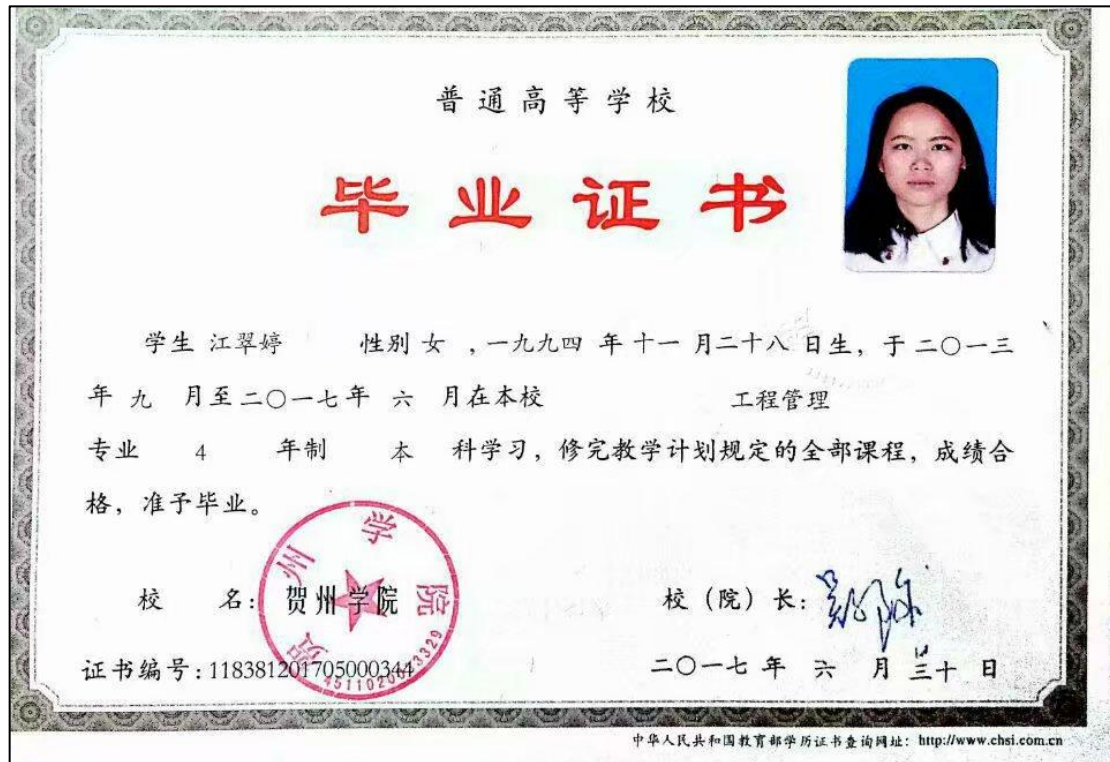 普通高等学校
毕业证书
学生 江翠婷 性别 女 ，一九九四 年 十一 月二十八 日生，于 二〇一三
年 九 月至 二〇一七 年 六 月在本校 工程管理
专业 4 年制 本 科学习，修完教学计划规定的全部课程，成绩合
格，准予毕业。
校 名：贺州学院 校（院）长：
贺州学院
证书编号：118381201705000344 二〇一七 年 六 月 三十 日
中华人民共和国教育部学历证书查询网址：http://www.chsi.com.cn